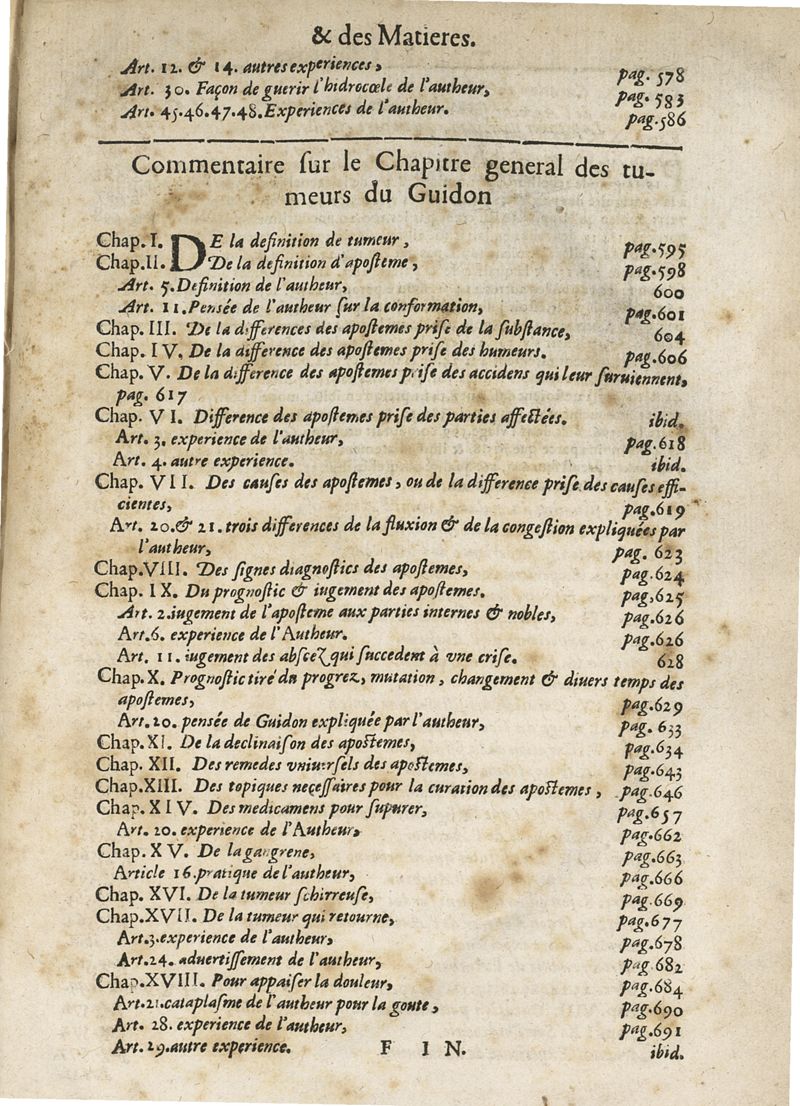 & des Matieres.
Art. 12. & 14. autres experiences, pag. 578
Art. 30. Façon de guerir l'hidrocœle de l'autheur, pag. 583
Art. 45.46.47.48. Experiences de l'autheur. pag.586
Commentaire sur le Chapitre general des tu-
meurs du Guidon
Chap. I. DE la definition de tumeur, pag.595
Chap.II. De la definition d'aposteme, pag.598
Art. 5. Definition de l'autheur, 600
Art. 11. Pensée de l'autheur sur la conformation, pag.601
Chap. III. De la differences des apostemes prise de la substance, 604
Chap. IV. De la difference des apostemes prise des humeurs. pag.606
Chap. V. De la difference des apostemes prise des accidens qui leur suruiennent,
pag. 617
Chap. VI. Difference des apostemes prise des parties affectées. ibid.
Art. 3. experience de l'autheur, pag.618
Art. 4. autre experience. ibid.
Chap. VII. Des causes des apostemes, ou de la difference prise des causes effi-
cientes, pag.619
Art. 20.& 21. trois differences de la fluxion & de la congestion expliquées par
l'autheur, pag. 623
Chap.VIII. Des signes diagnostics des apostemes, pag.624
Chap. IX. Du prognostic & iugement des apostemes. pag.625
Art. 2. iugement de l'aposteme aux parties internes & nobles, pag.626
Art.6. experience de l'Autheur. pag.626
Art. 11. iugement des abscez qui succedent à vne crise. 628
Chap. X. Prognostic tiré du progrez, mutation, changement & divers temps des
apostemes, pag.629
Art.20. pensée de Guidon expliquée par l'autheur, pag. 633
Chap. XI. De la declinaison des apostemes, pag.634
Chap. XII. Des remedes vniuersels des apostemes, pag.643
Chap.XIII. Des topiques necessaires pour la curation des apostemes, pag.646
Chap. XIV. Des medicamens pour supurer, pag.657
Art. 20. experience de l'Autheur, pag.662
Chap. XV. De la gangrene, pag.663
Article 16. pratique de l'autheur, pag.666
Chap. XVI. De la tumeur schirreuse, pag.669
Chap.XVII. De la tumeur qui retourne, pag.677
Art.3. experience de l'autheur, pag.678
Art.24. advertissement de l'autheur, pag.682
Chap.XVIII. Pour appaiser la douleur, pag.684
Art.21. cataplasme de l'autheur pour la goute, pag.690
Art. 28. experience de l'autheur, pag.691
Art. 29. autre experience. FIN. ibid.